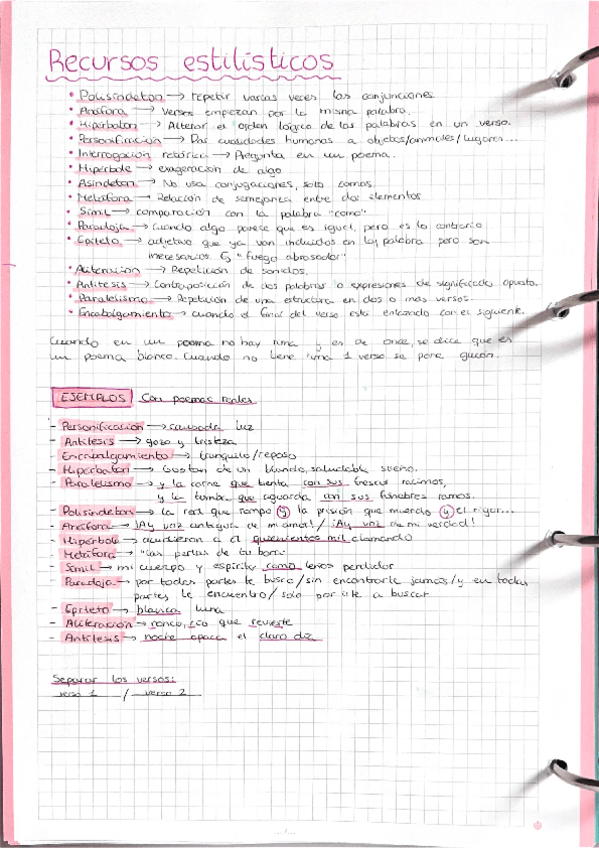 Recursos estilísticos
• Polisíndeton → repetir varias veces las conjunciones.
• Anáfora → versos empiezan por la misma palabra.
• Hipérbaton → Alterar el orden lógico de las palabras en un verso.
• Personificación → Dar cualidades humanas a objetos/animales/lugares...
• Interrogación retórica → Pregunta en un poema.
• Hipérbole → exageración de algo
• Asíndeton → No usa conjugaciones, solo comas.
• Metáfora → Relación de semejanza entre dos elementos
• Símil → comparación con la palabra "como"
• Paradoja → Cuando algo parece que es igual, pero es lo contrario
• Epíteto → adjetivo que ya van incluidos en la palabra pero son
innecesarios. "fuego abrasador"
• Aliteración → Repetición de sonidos.
• Antítesis → Contraposición de dos palabras o expresiones de significado opuesto.
• Paralelismo → Repetición de una estructura en dos o más versos.
• Encabalgamiento → cuando el final del verso está enlazado con el siguiente.
Cuando en un poema no hay rima y es de once, se dice que es
un poema blanco. Cuando no tiene rima 1 verso se pone guión.
EJEMPLOS Con poemas reales
- Personificación → cansada luz
- Antítesis → gozo y tristeza
- Encabalgamiento → tranquilo/reposo
- Hipérbaton → Gustan de un blando, saludable sueño.
- Paralelismo → y la carne que tienta con sus frescos racimos,
y la tumba que aguarda con sus fúnebres ramos.
- Polisíndeton → la red que rompo y la prisión que muerdo y el rigor...
- Anáfora → ¡Ay voz antigua de mi amor! / ¡Ay voz de mi verdad!
- Hipérbole → acudieron a él quinientos mil clamando
- Metáfora → "las perlas de tu boca"
- Símil → mi cuerpo y espíritu como leños perdidos
- Paradoja → por todas partes te busco/sin encontrarte jamás/y en todas
partes te encuentro/solo por irte a buscar
- Epíteto → blanca luna
- Aliteración → ronco, río que revierte
- Antítesis → noche opaca el claro día
Separar los versos:
verso 1 / verso 2